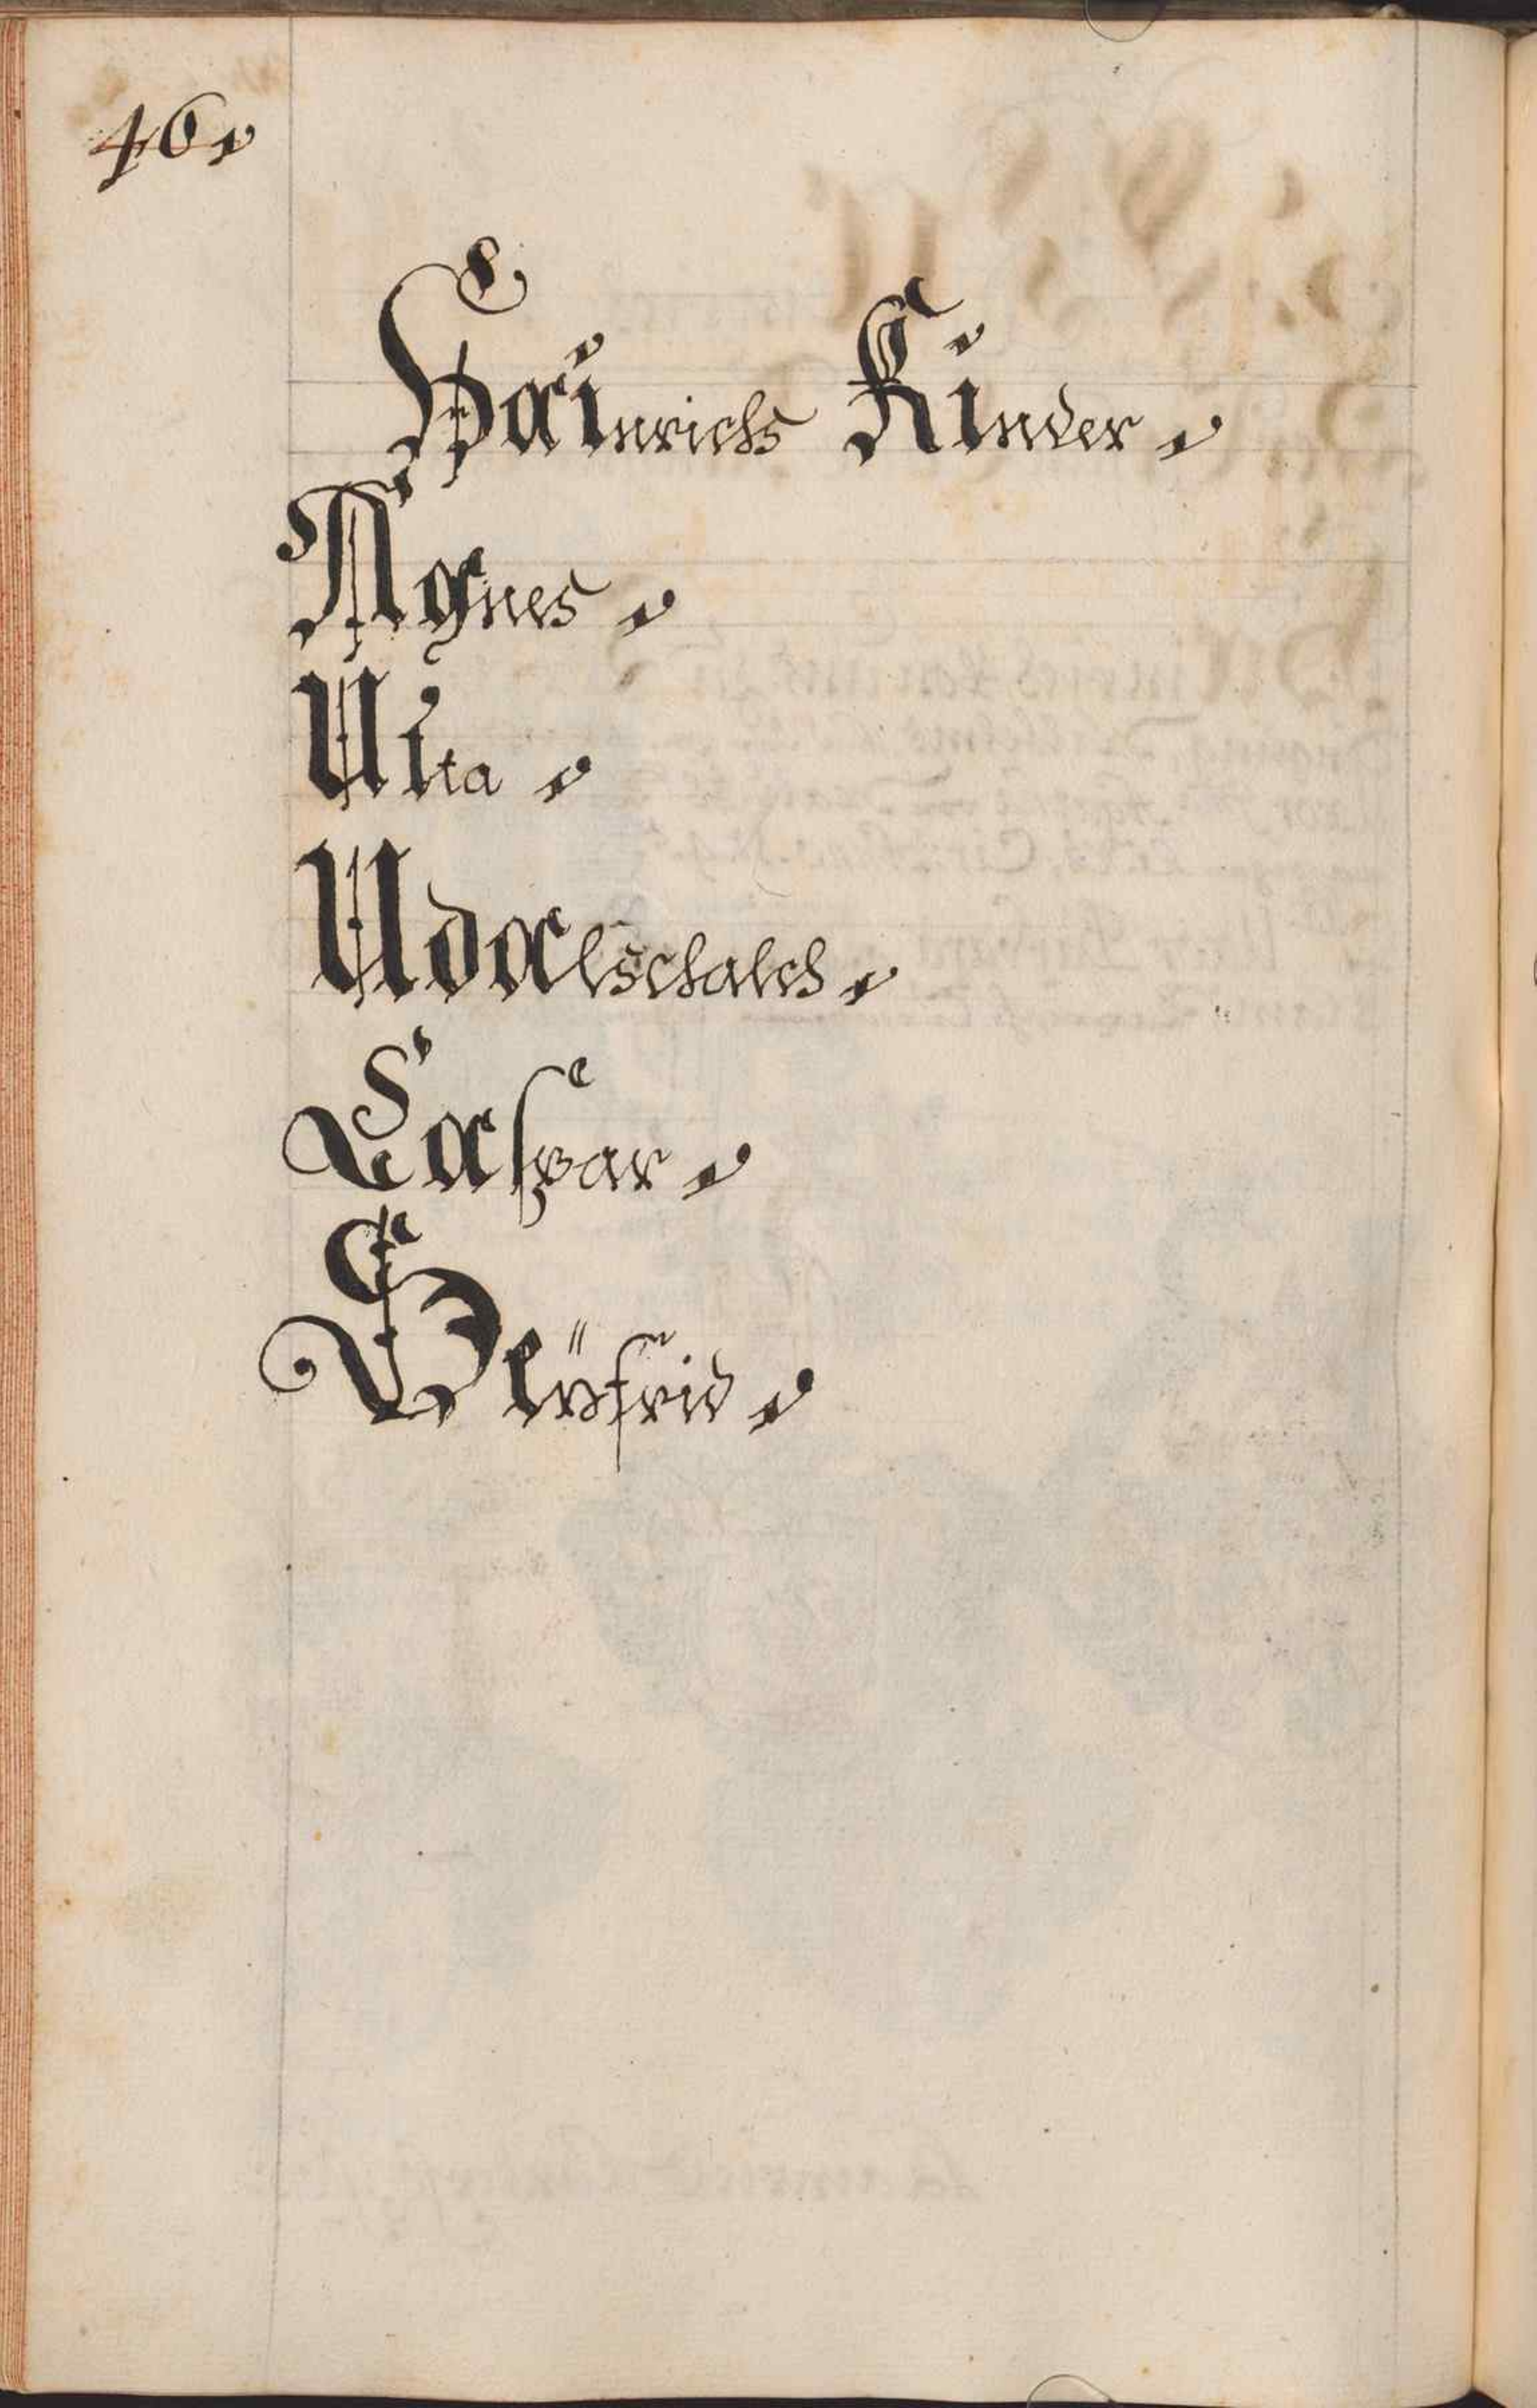 46.
Hainrichs Kinder.
Agnes.
Uita.
Udalschalch.
Caspar.
Seÿfrid.